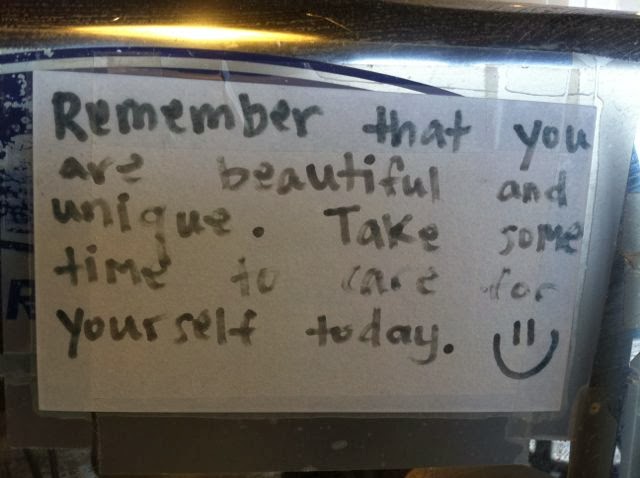 Remember that you
are beautiful and
unique. Take some
time to care for
yourself today.